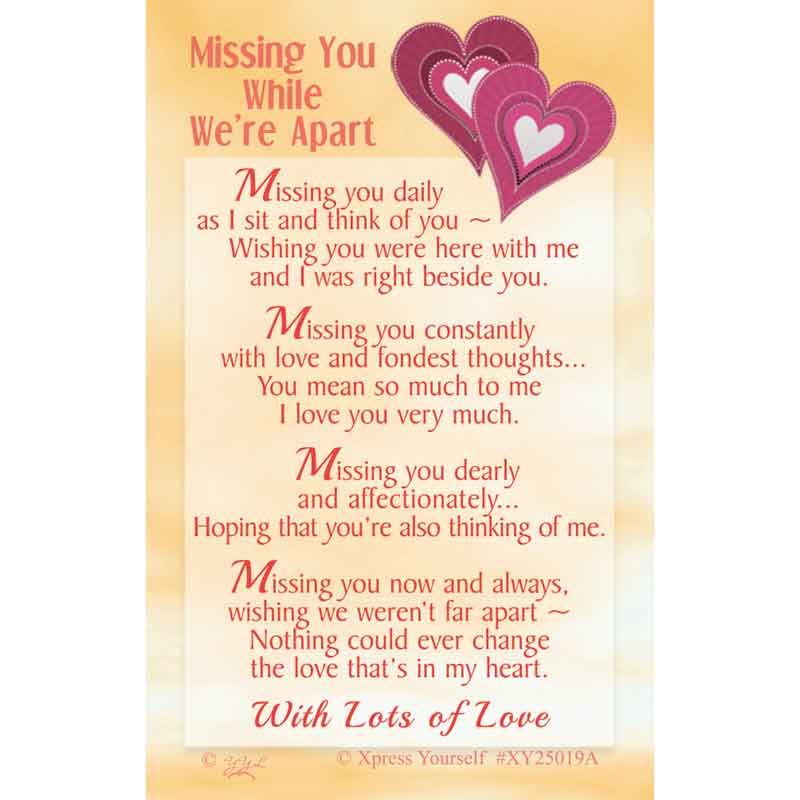 Missing You
While
We're Apart
Missing you daily
as I sit and think of you ~
Wishing you were here with me
and I was right beside you.
Missing you constantly
with love and fondest thoughts...
You mean so much to me
I love you very much.
Missing you dearly
and affectionately...
Hoping that you're also thinking of me.
Missing you now and always,
wishing we weren't far apart ~
Nothing could ever change
the love that's in my heart.
With Lots of Love
© © Xpress Yourself #XY25019A